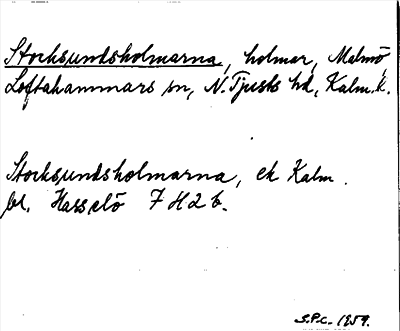 Stocksundsholmarna, holmar, Malmö,
Loftahammars sn, N. Tjusts hd, Kalm. l.
Stocksundsholmarna, ek Kalm.
bl. Hasselö 7 H 2 b.
S.P.C. 1959.